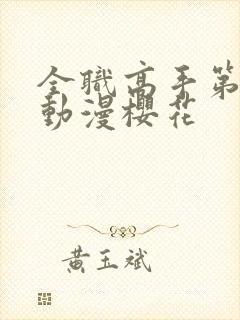 全職高手第
動漫櫻花
黃玉斌